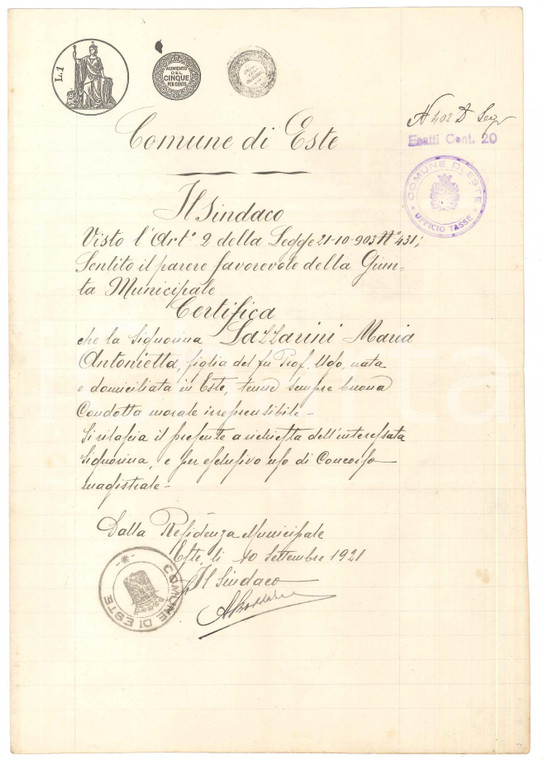 L.1
AUMENTO
DEL
CINQUE
PER CENTO
N 402 D Segr
Esatti Cent. 20
COMUNE DI ESTE
UFFICIO TASSE
Comune di Este
Il Sindaco
Visto l'Art.º 2 della Legge 21-10-903 Nº 431;
Sentito il parere favorevole della Giun-
ta Municipale
Certifica
che la Signorina Lazzarini Maria
Antonietta, figlia del fu Prof. Ugo, nata
e domiciliata in Este, tenne sempre buona
Condotta morale irreprensibile-
Si rilascia il presente a richiesta dell'interessata
Signorina, e per esclusivo uso di Concorso
magistrale-
Dalla Residenza Municipale
Este, li 10 Settembre 1921
Il Sindaco
COMUNE DI ESTE